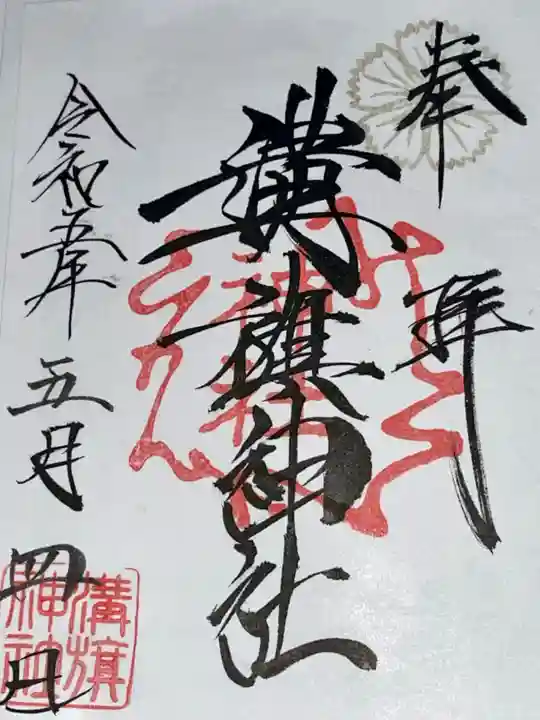 奉拝
溝旗神社
令和五年五月四日
溝旗神社